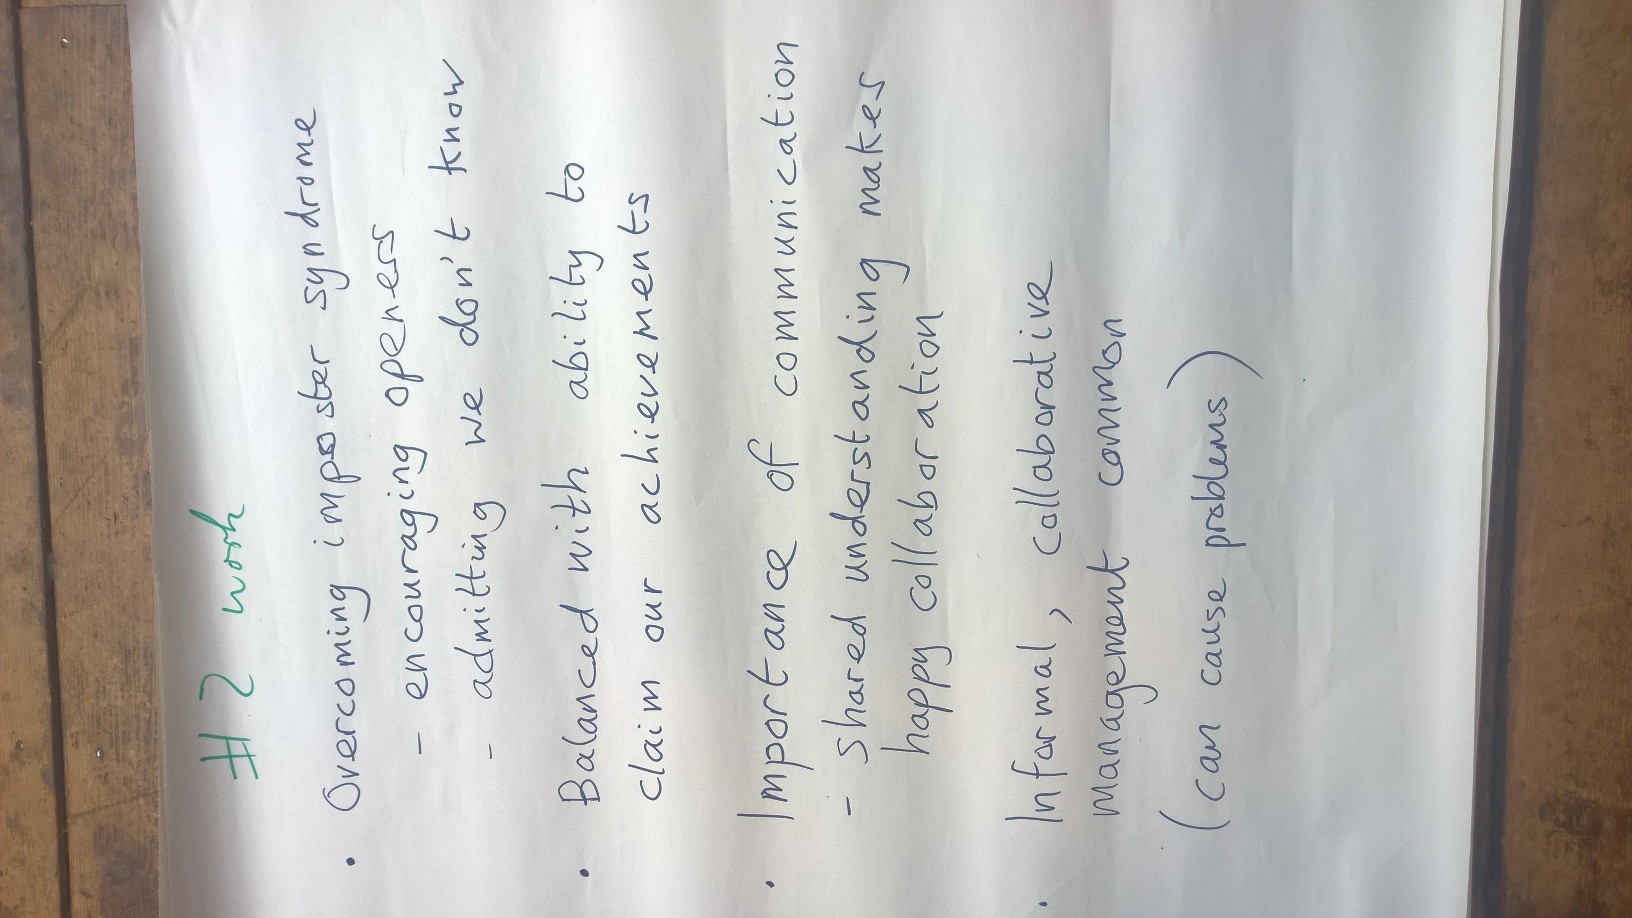 #2 work
• Overcoming imposter syndrome
- encouraging openess
- admitting we don't know
• Balanced with ability to
claim our achievements
• Importance of communication
- shared understanding makes
happy collaboration
• Informal, collaborative
management common
(can cause problems)